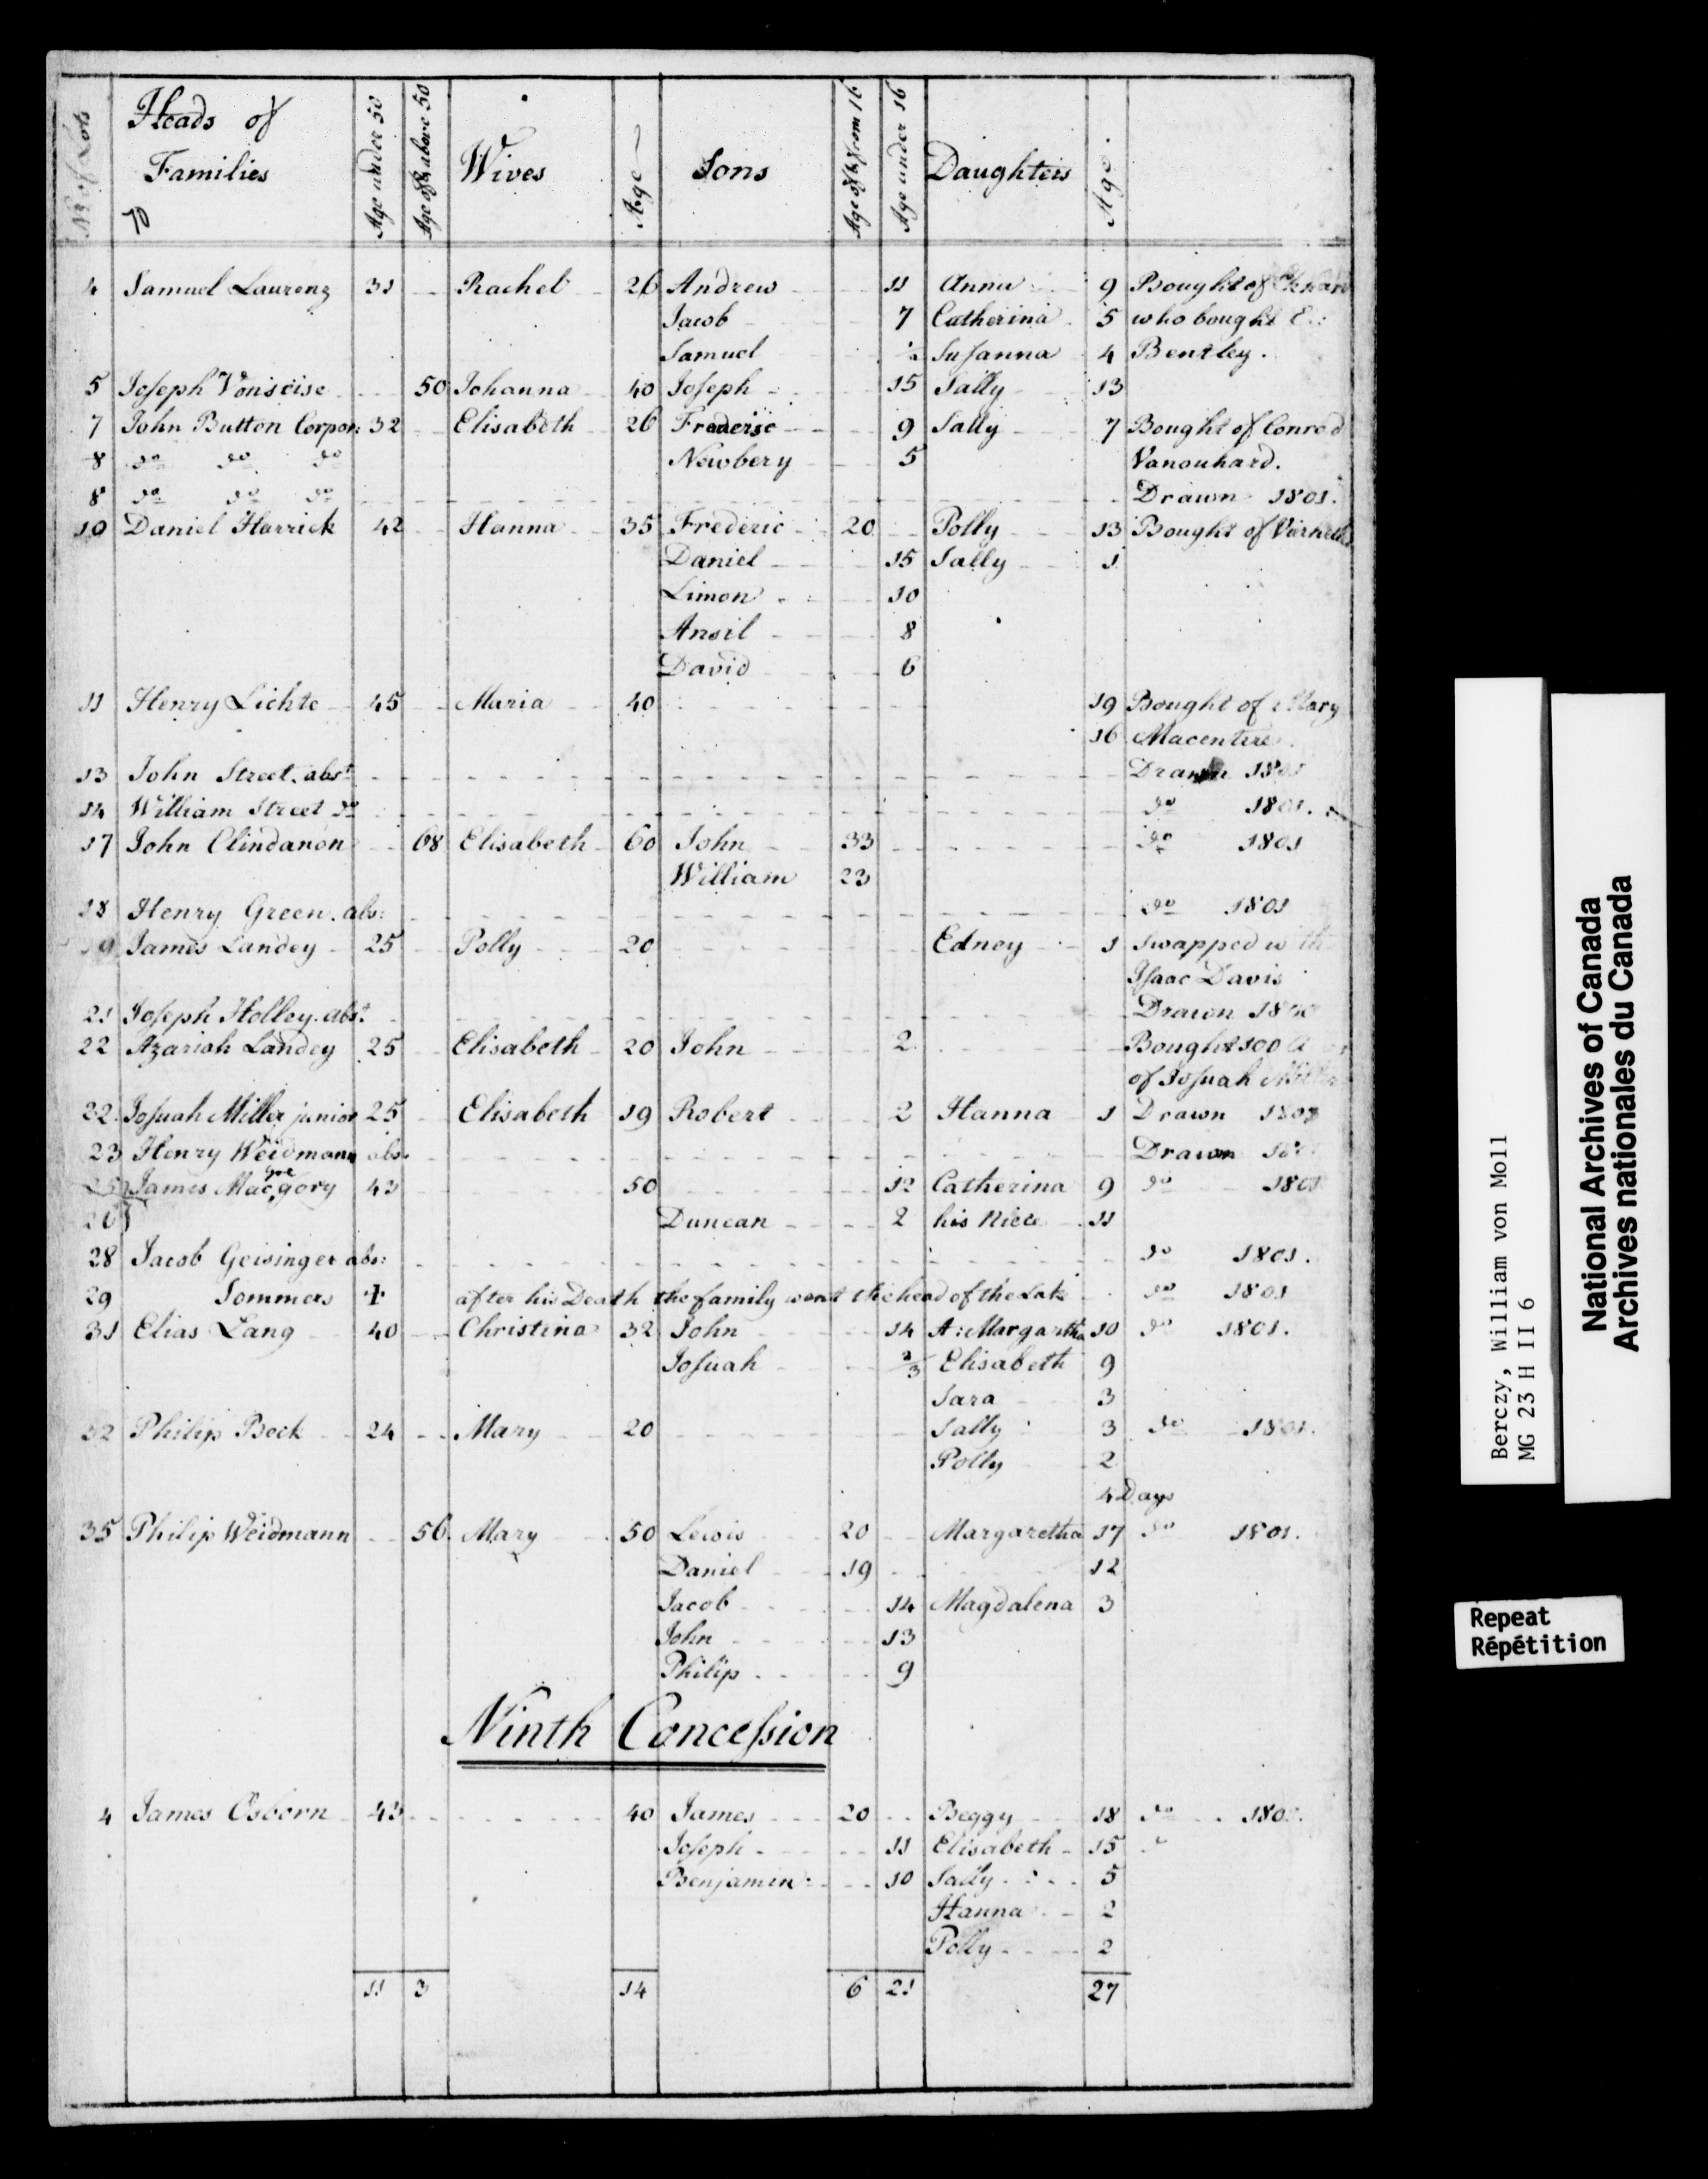 No. of Lots | Heads of Families | Age under 50 | Age of & above 50 | Wives | Age | Sons | Age of & from 16 | Age under 16 | Daughters | Age
4 Samuel Laurenz 31 Rachel 26 Andrew 11 Anna 9 Bought of
Jacob 7 Catherina 5 who bought E:
Samuel ½ Susanna 4 Bentley.
5 Joseph Vonscise 50 Johanna 40 Joseph 15 Sally 13
7 John Button Corpor: 32 Elisabeth 26 Frederic 9 Sally 7 Bought of Conrad
8 do do do Newbery 5 Vanouhard.
8 do do do Drawn 1801.
10 Daniel Harrick 42 Hanna 35 Frederic 20 Polly 13 Bought of
Daniel 15 Sally 1
Limon 10
Ansil 8
David 6
11 Henry Lichte 45 Maria 40 19 Bought of Mary
16 Macentire
13 John Street. abst Drawn 1801
14 William Street do do 1801.
17 John Clindanon 68 Elisabeth 60 John 33 do 1801
William 23
18 Henry Green. abs: do 1801
19 James Landey 25 Polly 20 Edney 1 swapped with
Isaac Davis
21 Joseph Holley. abst Drawn
22 Azariah Landey 25 Elisabeth 20 John 2 Bought 100 A
of Josuah Miller
22. Josuah Miller junior 25 Elisabeth 19 Robert 2 Hanna 1 Drawn
23 Henry Weidmann abs. Drawn
25 James Macgregory 43 50 12 Catherina 9 do 1801
26 Duncan 2 his Niece 11
28 Jacob Geisinger abs: do 1801.
29 Sommers + after his Death the family went the head of the Lake do 1801
31 Elias Lang 40 Christina 32 John 14 A: Margaretha 10 do 1801.
Josuah ⅔ Elisabeth 9
Sara 3
32 Philip Beck 24 Mary 20 Sally 3 do 1801.
Polly 2
4 Days
35 Philip Weidmann 56 Mary 50 Lewis 20 Margaretha 17 do 1801.
Daniel 19 12
Jacob 14 Magdalena 3
John 13
Philip 9
Ninth Concession
4 James Osborn 43 40 James 20 Beggy 18 do
Joseph 11 Elisabeth 15
Benjamin 10 Sally 5
Hanna 2
Polly 2
11 3 14 6 21 27
Berczy, William von Moll
MG 23 H II 6
National Archives of Canada
Archives nationales du Canada
Repeat
Répétition